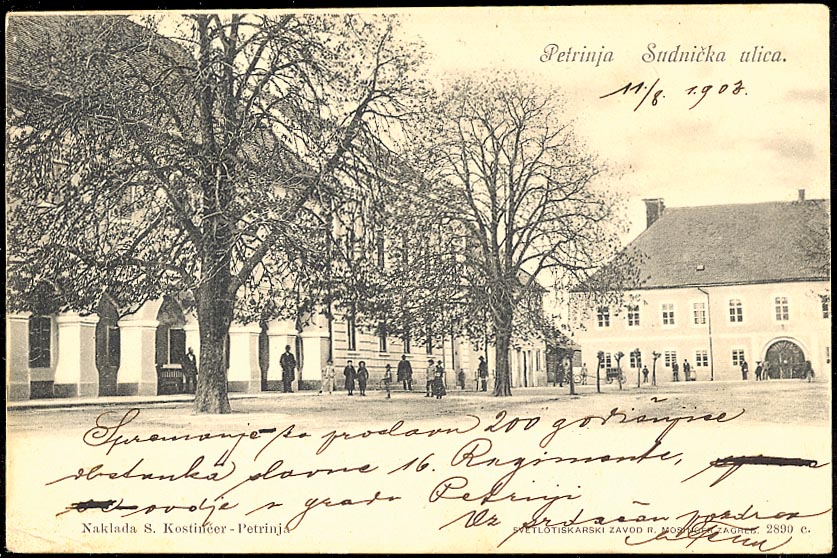 Petrinja Sudnička ulica.
11/8 1903.
Spremanje za proslavu 200 godišnjice
obstanka slavne 16. Regimente,
ovdje u gradu Petrinji
Uz srdačan pozdrav
Naklada S. Kostinčer - Petrinja
SVETLOTISKARSKI ZAVOD R. MOSINGER ZAGREB. 2890 c.